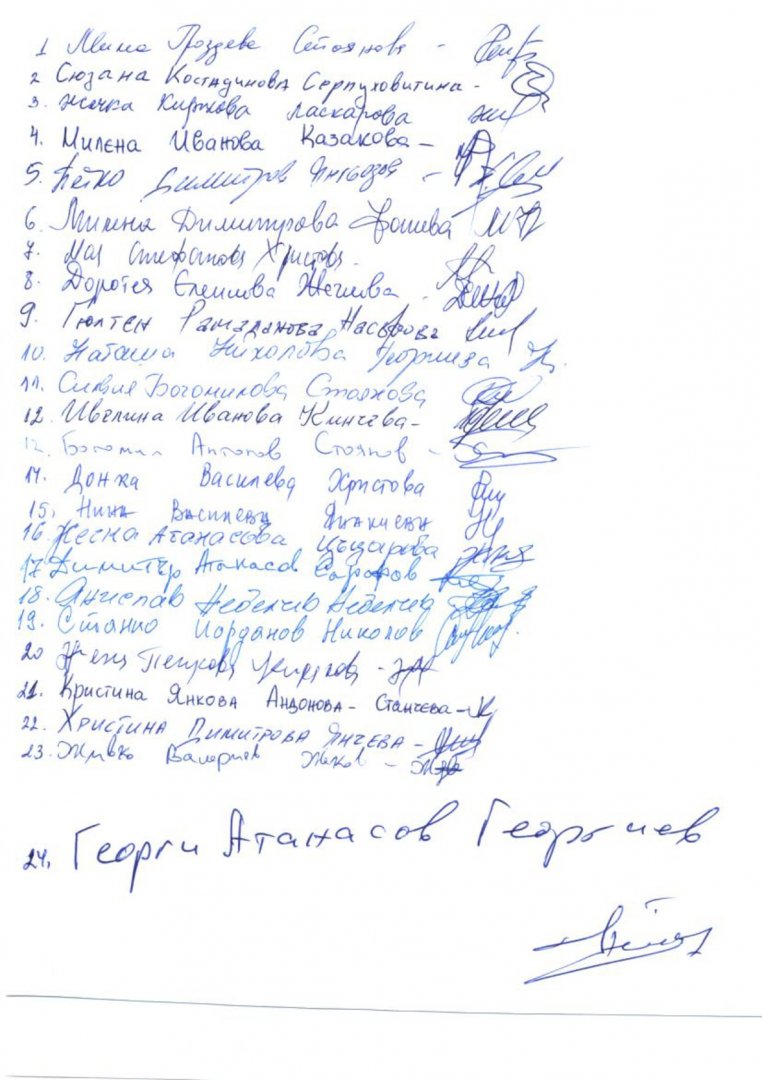 1 Мина Гроздева Стоянова -
2 Сюзана Костадинова Серпуховитина -
3. Жечка Киркова Ласкарова
4. Милена Иванова Казакова -
5. Петко Димитров Янгьозов -
6. Милена Димитрова
7. Мая Стефанова Христова.
8. Доротея Желева -
9. Гюлтен Рамаданова
10. Наташа Николова Георгиева
11. Силвия Богомилова Стоянова
12. Ивелина Иванова Кинчева -
Богомил Антонов Стоянов -
14. Донка Василева Христова
15. Нина Василева Янакиева
16. Жесна Атанасова
17. Димитър Атанасов
18. Неделчев Неделчев
19. Станко Йорданов Николов
20 Женя Петрова -
21. Кристина Янкова Андонова - Станчева -
22. Христина Димитрова Янчева -
23. Живко Валериев Жеков -
24. Георги Атанасов Георгиев